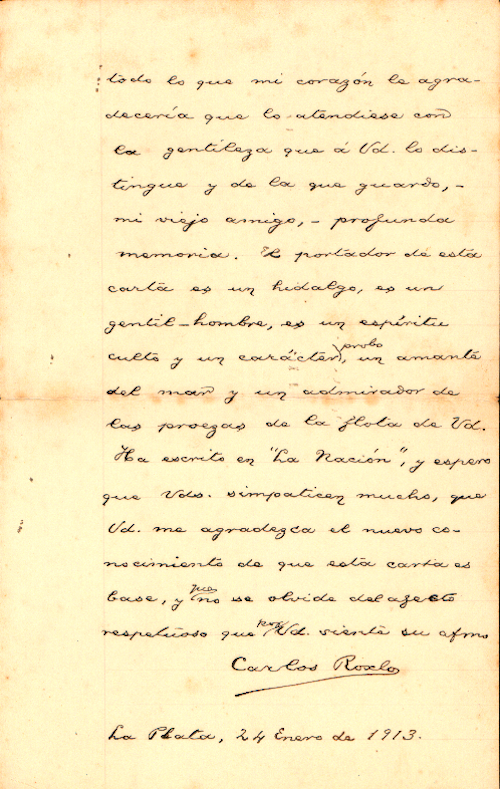 todo lo que mi corazón le agra-
decería que lo atendiese con
la gentileza que á Vd. lo dis-
tingue y de la que guardo, -
mi viejo amigo, - profunda
memoria. El portador de esta
carta es un hidalgo, es un
gentil-hombre, es un espíritu
culto y un carácter probo, un amante
del mar y un admirador de
las proezas de la flota de Vd.
Ha escrito en "La Nación", y espero
que Vds. simpaticen mucho, que
Vd. me agradezca el nuevo co-
nocimiento de que esta carta es
base, y que no se olvide del afecto
respetuoso que por Vd. siente su afmo
Carlos Roxlo
La Plata, 24 Enero de 1913.